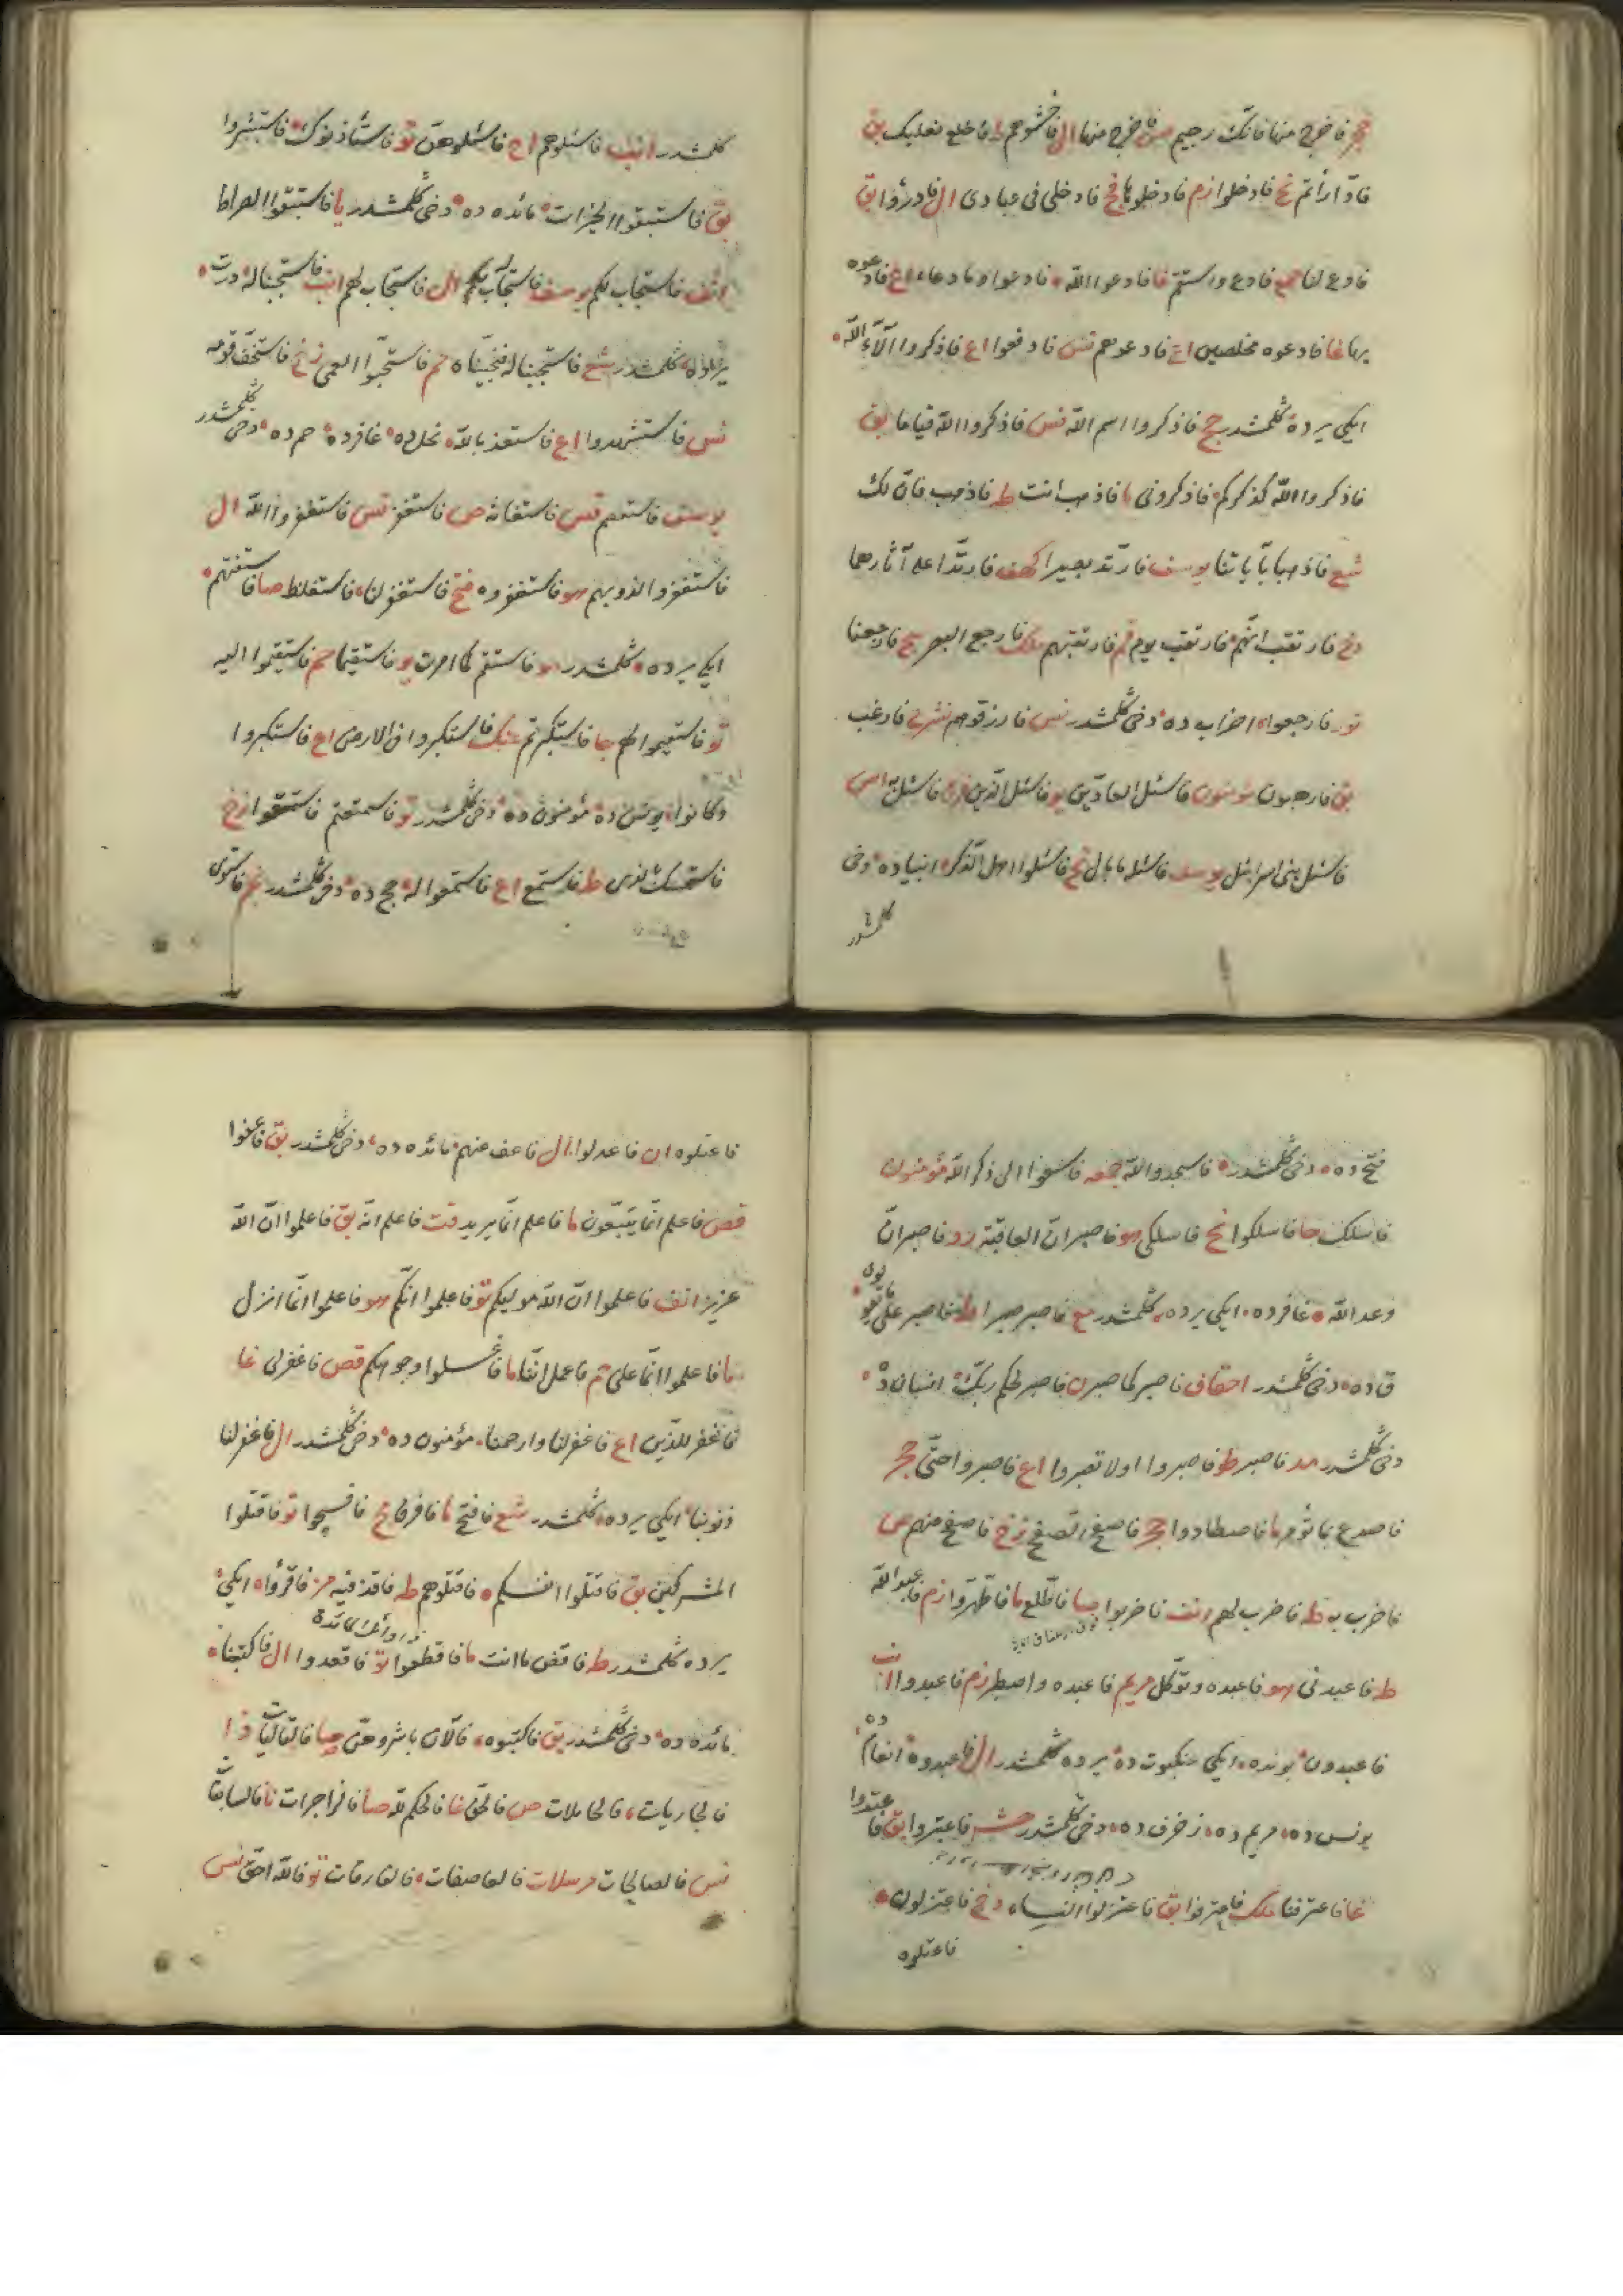 حجر فاخرج منها فانك رجيم ص فاخرج منها ال فاخشوهم ط فاخلع نعليك بق
فادّارأتم نح فادخلوا زم فادخلوها فج فادخلى فى عبادى ال فادرؤا بق
فادع لنا حمع فادع واستقم غا فادعوا الله فادعوا وما دعاء اع فادعوه
بها غا فادعوه مخلصين اع فادعوهم نس فادفعوا اع فاذكروا آلآء الله
ايكى يرده كلمشدر حج فاذكروا اسم الله نس فاذكروا الله قياما بق
فاذكروا الله كذكركم فاذكرونى ما فاذهب انت ط فاذهب فان لك
شع فاذهبا بآياتنا يوسف فارتد بصيرا كهف فارتدا على آثارهما
دخ فارتقب انهم فارتقب يوم قم فارتقبهم ملك فارجع البصر سج فارجعنا
نور فارجعوا احزاب ده دخى كلمشدر نس فارزقوهم نشرح فارغب
بق فارهبون مؤمنون فاسئل العادّين يو فاسئل الذين فر فاسئل به اس
فاسئل بنى اسرائيل يوسف فاسئله ما بال نح فاسئلوا اهل الذكر انبياده دخى
كلمشدر
كلمشدر انب فاسئلوهم اع فاسئلوهن تو فاستأذنوك فاستبشروا
بق فاستبقوا الخيرات مائده ده دخى كلمشدر يا فاستبقوا الصراط
انف فاستجاب لكم يوسف فاستجاب له ربه ال فاستجاب لهم انب فاستجبنا له درت
يرده كلمشدر شع فاستجبنا له فنجيناه حم فاستحبوا العمى زخ فاستخف قومه
نس فاستشهدوا اع فاستعذ بالله نحل ده غافرده حم ده دخى كلمشدر
يوسف فاستعصم قص فاستغاثه ص فاستغفر نس فاستغفروا الله ال
فاستغفروا لذنوبهم هو فاستغفروه فتح فاستغفر لنا فاستغلظ صا فاستفتهم
ايكى يرده كلمشدر هو فاستقم كما امرت يو فاستقيما حم فاستقيموا اليه
تو فاستقيموا لهم جا فاستكبرتم عنك فاستكبروا فى الارض اع فاستكبروا
وكانوا يونس ده مؤمنون ده دخى كلمشدر تو فاستمتعتم فاستمتعوا زخ
فاستمسك بالذى ط فاستمع اع فاستمعوا له حج ده دخى كلمشدر نجم فاستوى
فتح ده دخى كلمشدر فاسجدوا لله جمعه فاسعوا الى ذكر الله مؤمنون
فاسلك حا فاسلكوا نح فاسلكى هو فاصبر ان العاقبة رو فاصبر انّ
وعد الله غافرده ايكى يرده كلمشدر مع فاصبر صبرا ط فاصبر على ما يقولون
ق ده دخى كلمشدر احقاف فاصبر كما صبر ن فاصبر لحكم ربك انسان ده
دخى كلمشدر مد فاصبر طو فاصبروا اولا تصبروا اع فاصبروا حتّى حجر
فاصدع بما تؤمر ما فاصطادوا حجر فاصفح الصفح زخ فاصفح عنهم ص
فاضرب به ط فاضرب لهم انف فاضربوا صا فاطّلع ما فاطّهّروا زم فاعبد الله
ط فاعبدنى هو فاعبده وتوكّل مريم فاعبده واصطبر زم فاعبدوا انب
فاعبدون بونده ايكى عنكبوت ده يرده كلمشدر ال فاعبدوه انعام ده
يونس ده مريم ده زخرف ده دخى كلمشدر حشر فاعتبروا بق فاعتدوا
غا فاعترفنا ملك فاعترفوا بق فاعتزلوا النساء دخ فاعتزلون
فاعتلوه
فاعتلوه ان فاعدلوا ال فاعف عنهم مائده ده دخى كلمشدر بق فاعفوا
قص فاعلم انّما يتّبعون ما فاعلم انّما يريد قت فاعلم انّه بق فاعلموا انّ الله
عزيز انف فاعلموا ان الله موليكم تو فاعلموا انكم هو فاعلموا انّما انزل
ما فاعلموا انّما على حم فاعمل انّنا ما فاغسلوا وجوهكم قص فاغفرلى غا
فاغفر للذين اع فاغفر لنا وارحمنا مؤمنون ده دخى كلمشدر ال فاغفر لنا
ذنوبنا ايكى يرده كلمشدر شع فافتح ما فافرق مج فافسحوا تو فاقتلوا
المشركين بق فاقتلوا انفسكم فاقتلوهم ط فاقذفيه مز فاقرؤا ايكى
يرده كلمشدر ط فاقض ما انت ما فاقطعوا تو فاقعدوا ال فاكتبنا
مائده ده دخى كلمشدر بق فاكتبوه فالآن باشروهن صا فالتاليات ذا
فالجاريات فالحاملات ص فالحق غا فالحكم لله صا فالزاجرات نا فالسابقات
نس فالصالحات مرسلات فالعاصفات فالفارقات تو فالله احقّ نس